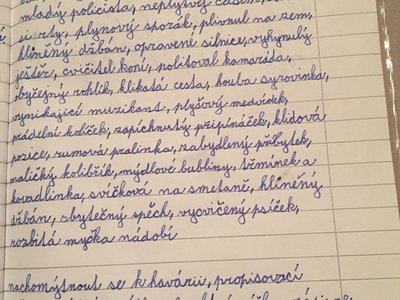 mladý policista, neplýtvej časem,
si rty, plynový sporák, plivnul na zem,
hliněný džbán, opravené silnice, vyhynulý
ještěr, cvičitel koní, politoval kamaráda,
obyčejný rohlík, klikatá cesta, houba syrovinka,
vynikající muzikant, plyšový medvídek,
prádelní kolíček, zapíchnutý připínáček, klidová
pozice, rumová pralinka, zabydlený příbytek,
maličký kolibřík, mýdlové bubliny, třmínek a
kovadlinka, svíčková na smetaně, hliněný
džbán, zbytečný spěch, vycvičený psíček,
rozbitá myčka nádobí
nachomýtnout se k havárii, propisovací